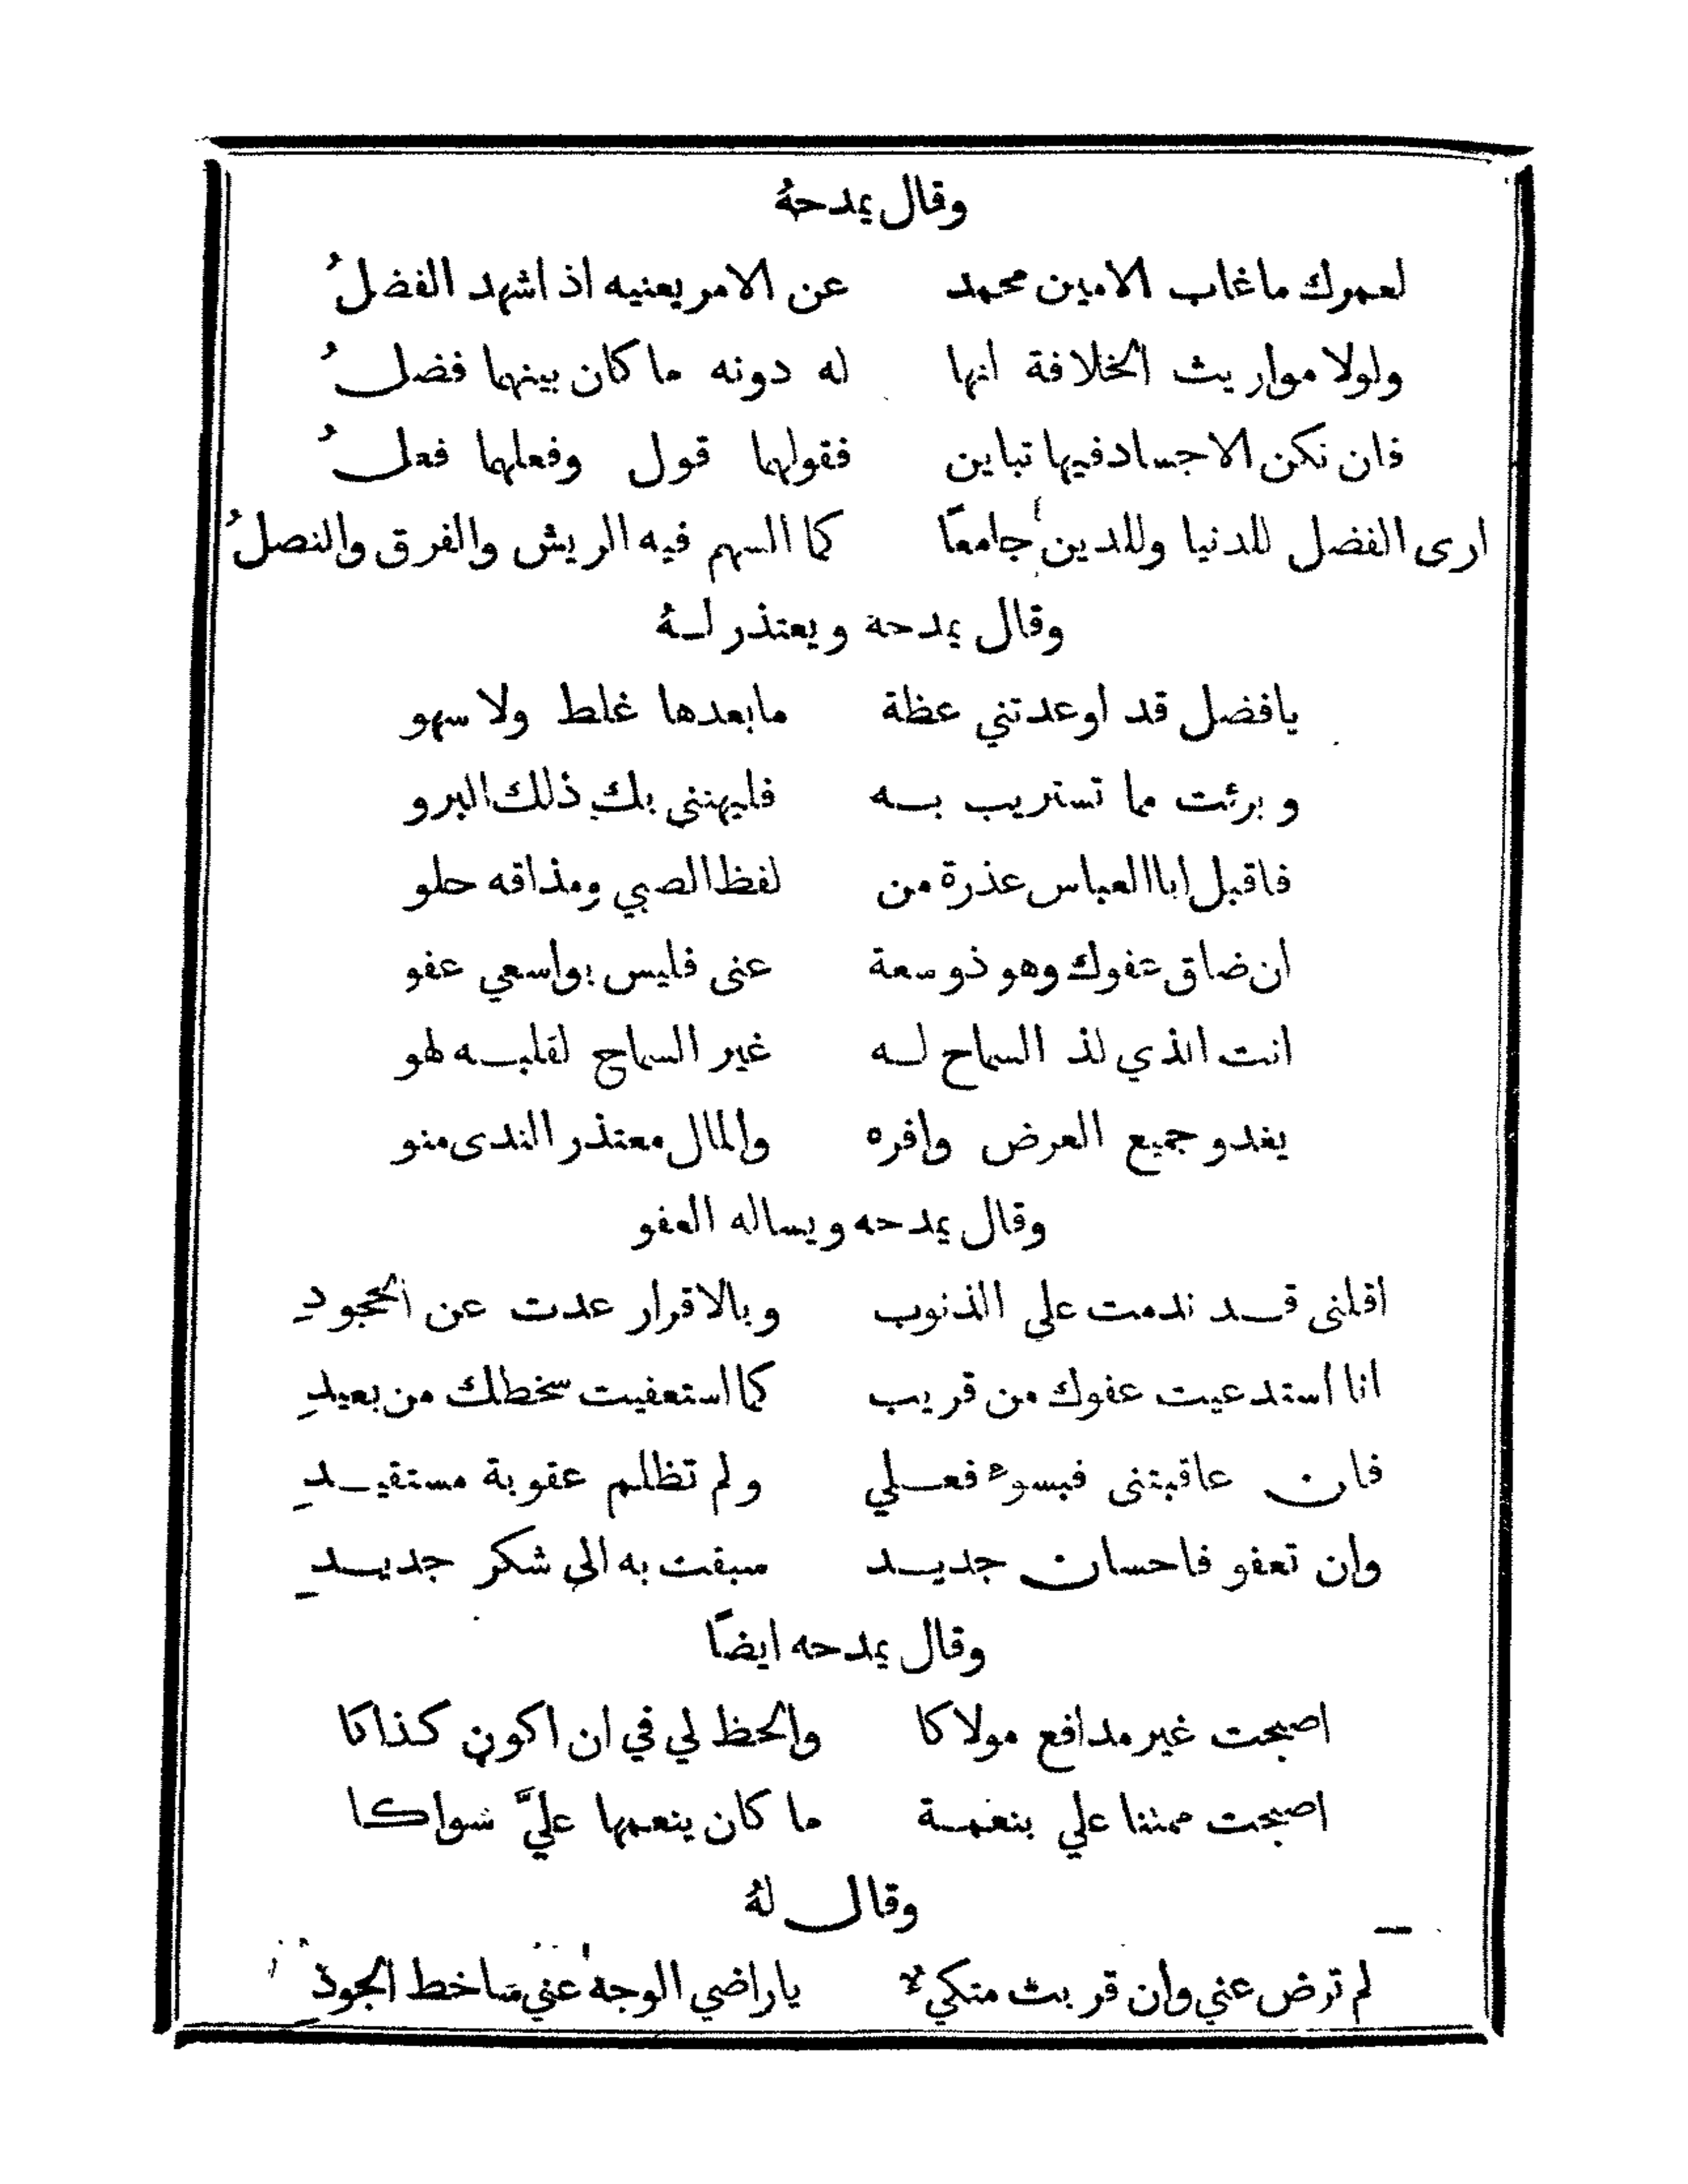 وقال يمدحهُ
لعمرك ماغاب الامين محمد عن الامر يعنيه اذ اشهد الفضلُ
ولولا مواريث الخلافة انها له دونه ما كان بينهما فضلُ
فان نكن الاجساد فيها تباين فقولهما قول وفعلهما فعلُ
ارى الفضل للدنيا وللدين جامعًا كما السهم فيه الريش والفرق والنصلُ
وقال يمدحه ويعتذر لهُ
يافضل قد اوعدتني عظة مابعدها غلط ولا سهو
وبرئت مما تستريب به فليهنني بك ذلك البرو
فاقبل ابا العباس عذرة من لفظ الصبي ومذاقه حلو
ان ضاق عفوك وهو ذو سعة عنى فليس بواسعي عفو
انت الذي لذ السماح له غير السماح لقلبه لهو
يغدو جميع العرض وافره والمال معتذر الندى منو
وقال يمدحه ويساله العفو
اقلنى قد ندمت علي الذنوب وبالاقرار عدت عن الجحودِ
انا استدعيت عفوك من قريب كما استعفيت سخطك من بعيدِ
فان عاقبتنى فبسوء فعلي ولم تظلم عقوبة مستقيدِ
وان تعفو فاحسان جديد سبقت به الى شكر جديدِ
وقال يمدحه ايضًا
اصبحت غير مدافع مولاكا والحظ لي في ان اكون كذاكا
اصبحت ممننا علي بنعمة ما كان ينعمها عليَّ سواكا
وقال لهُ
لم ترض عني وان قربت متكيء ياراضي الوجه عني ساخط الجود